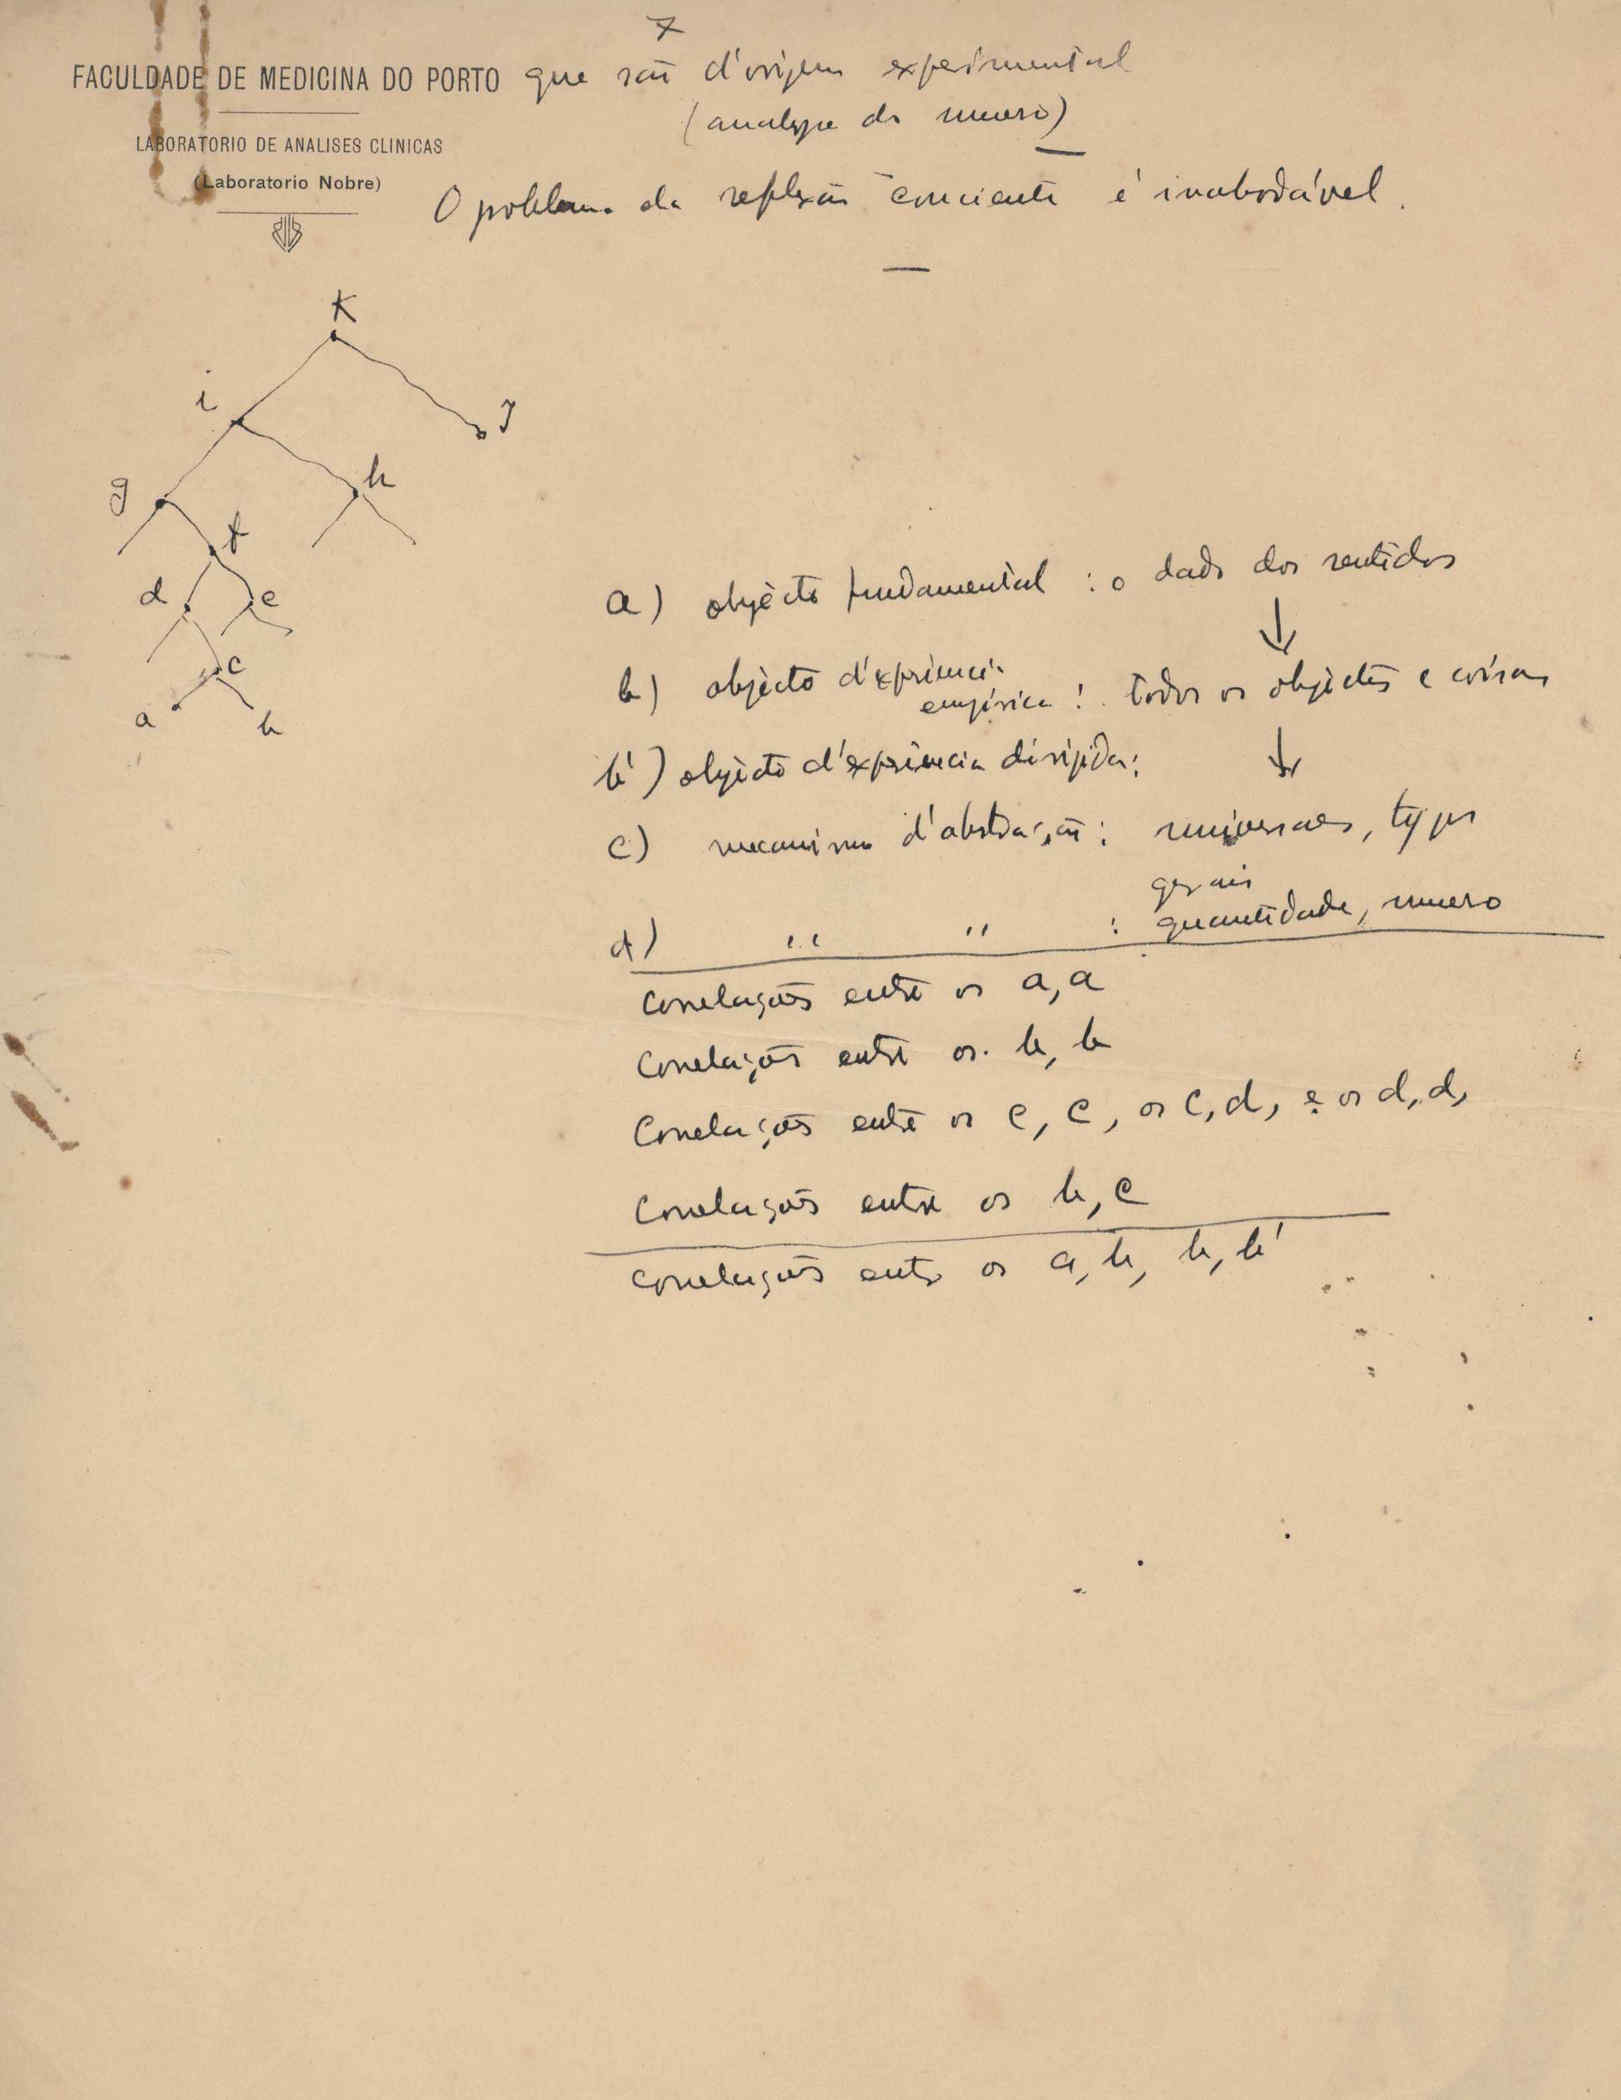 7
FACULDADE DE MEDICINA DO PORTO
que são d'origem experimental
(analyse do numero)
LABORATORIO DE ANALISES CLINICAS
(Laboratorio Nobre)
O poblema da reflexão conciente é inabordável.
K
i
J
g
h
f
d
e
c
a
b
a) objècto fundamental : o dado dos sentidos
b) objècto d'expriencia
empírica : todos os objèctos e coisas
b') objècto d'expriencia dirigida:
c) mecanismo d'abstração : universaes, typos
gerais
d) " " : quantidade, numero
Correlações entre os a, a
Correlações entre os b, b
Correlações entre os c, c, os c, d, e os d, d,
Correlações entre os b, c
Correlações entre os a, b, b, b'